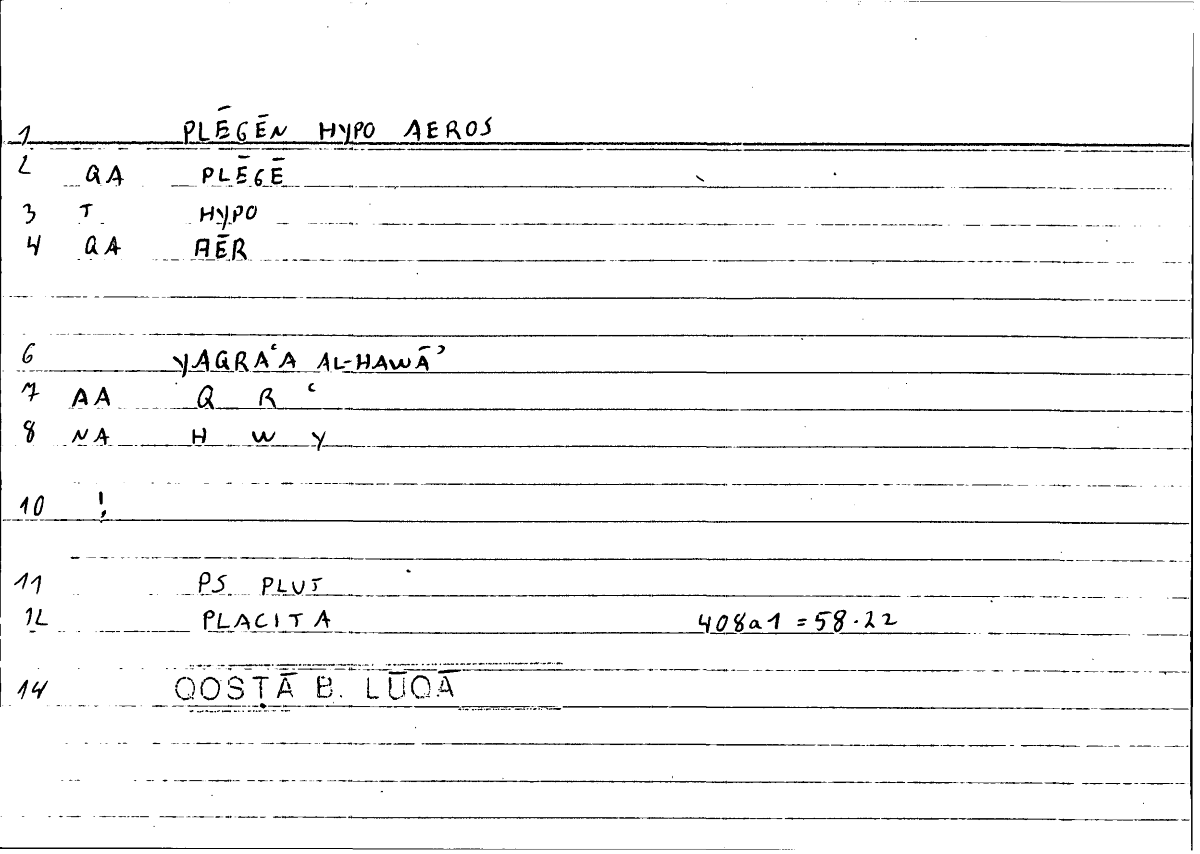 1 PLĒGĒN HYPO AEROS
2 QA PLĒGĒ
3 T HYPO
4 QA AĒR
6 YAQRAʿA AL-HAWĀʾ
7 AA Q R ʿ
8 NA H W Y
10 !
11 PS PLUT
12 PLACITA 408a1 = 58.22
14 QOSṬĀ B. LŪQĀ